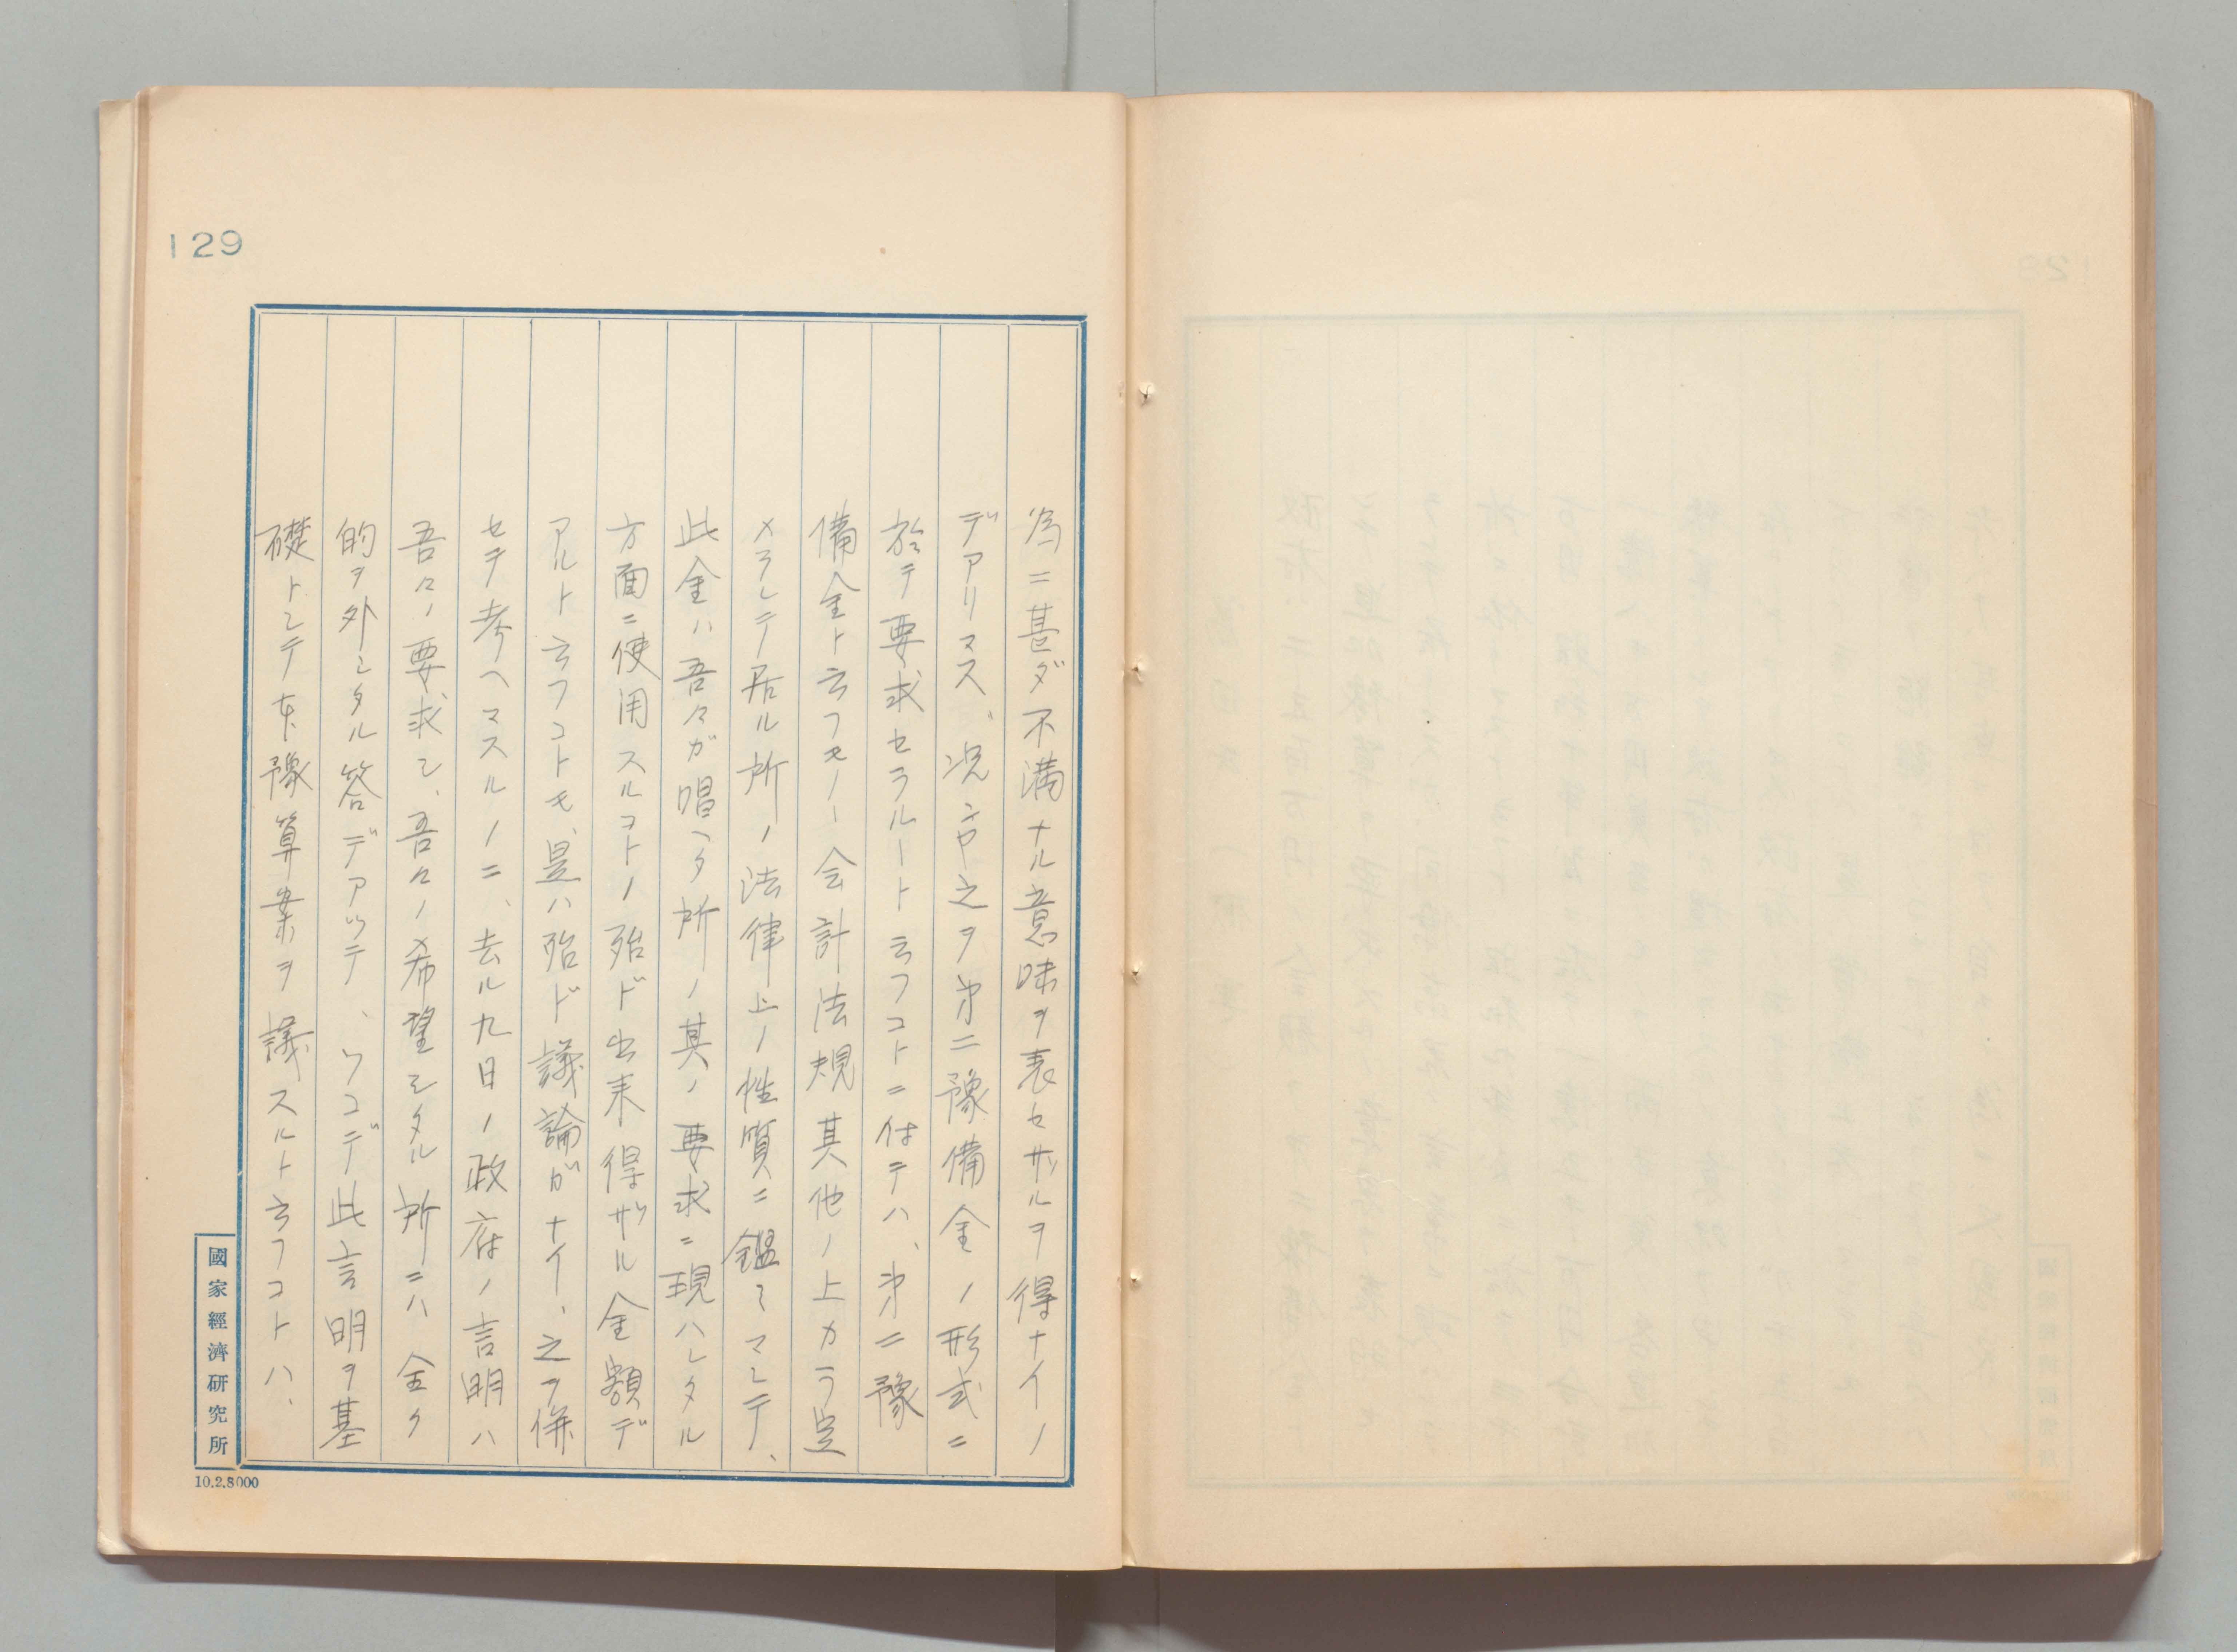 129
為ニ甚ダ不満ナル意味ヲ表セザルヲ得ナイノ
デアリマス、況ンヤ之ヲ第二豫備金ノ形式ニ
於テ要求セラルヽト云フコトニ付テハ、第二豫
備金ト云フモノヽ会計法規其他ノ上カラ定
メラレテ居ル所ノ法律上ノ性質ニ鑑ミマシテ、
此金ハ吾々ガ唱ヘタ所ノ其ノ要求ニ現ハレタル
方面ニ使用スルコトノ殆ド出来得ザル金額デ
アルト云フコトモ、是ハ殆ド議論ガナイ、之ヲ併
セテ考ヘマスルノニ、去ル九日ノ政府ノ言明ハ
吾々ノ要求シ、吾々ノ希望シタル所ニハ全ク
的ヲ外レタル答デアツテ、ソコデ此言明ヲ基
礎トシテ本豫算案ヲ議スルト云フコトハ、
國家經濟研究所
10.2.8000